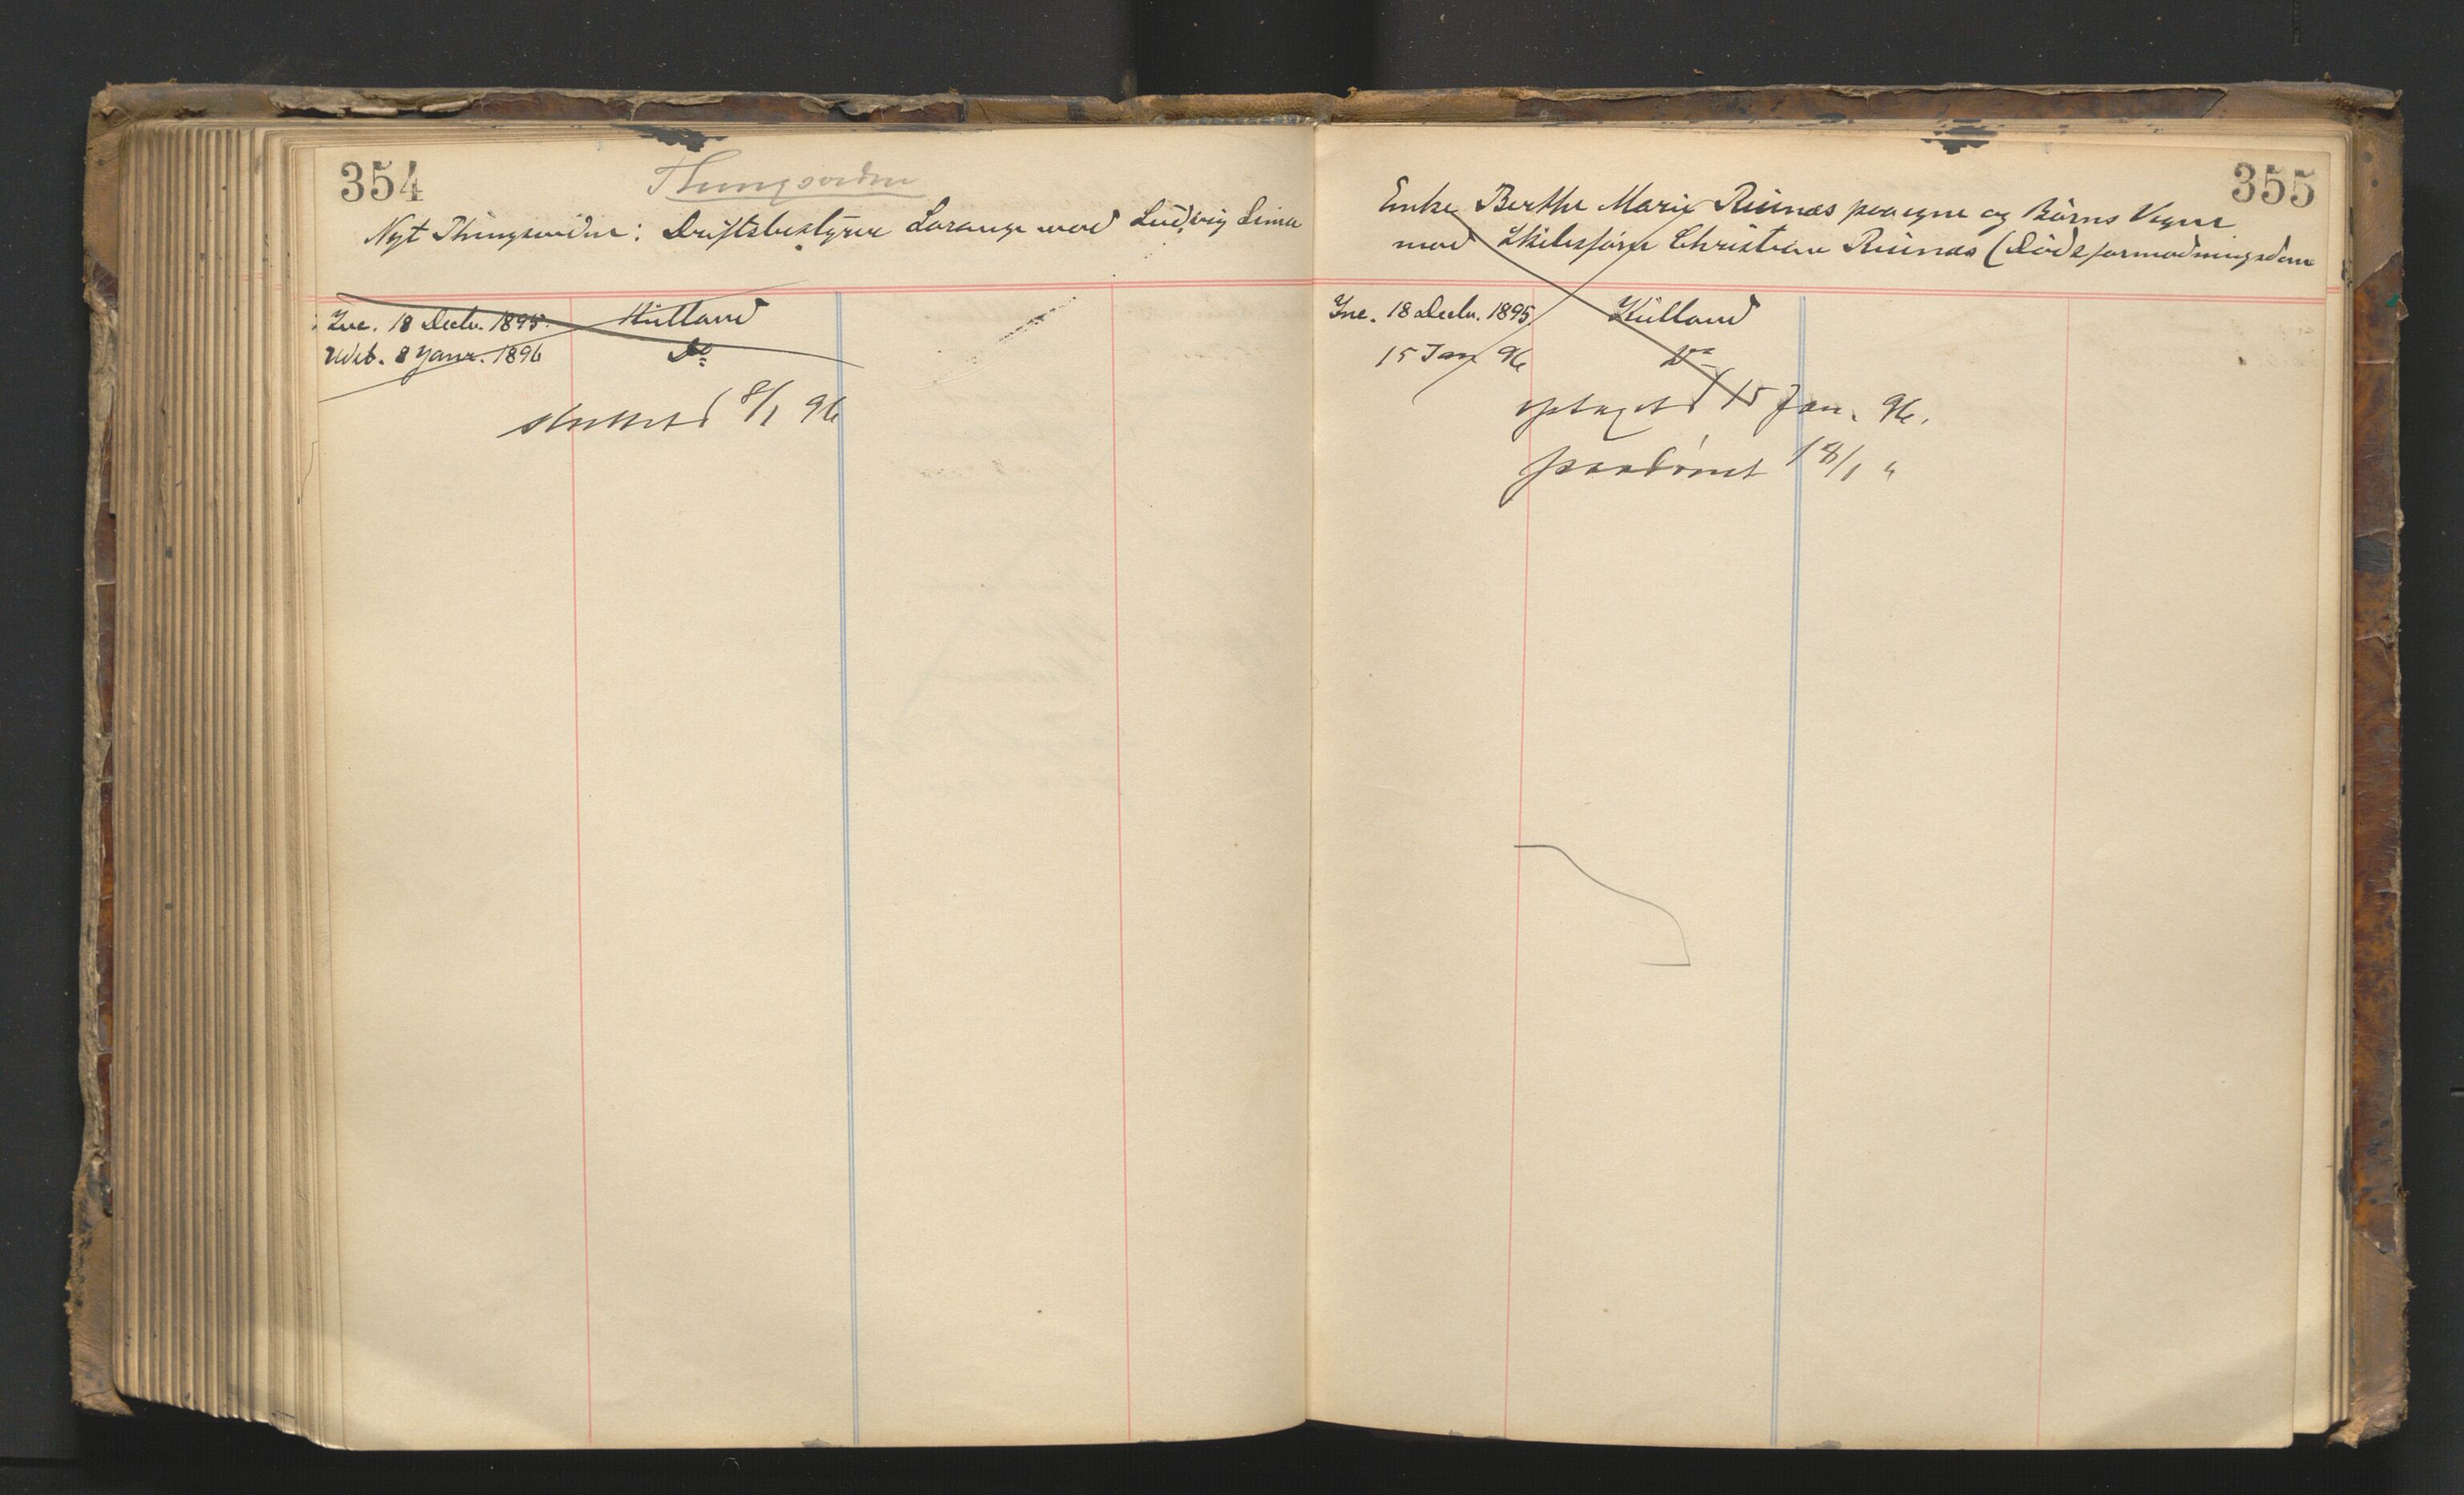 354
Thingsvidne
Nyt Thingsvidne: Driftsbestyrer Lorange mod Ludvig Lima
Inc. 18 Decbr. 1895. Kulland
Uds. 8 Janr. 1896 Do
sluttet 8/1 96
355
Enke Berthe Marie Riisnæs paa egne og Börns Vegne
mod Skibsförer Christian Riisnæs (Dödsformodningsdom
Inc. 18 Decbr. 1895. Kulland
15 Jan 96 Do
optaget 15 Jan. 96.
paadömt 18/1 "